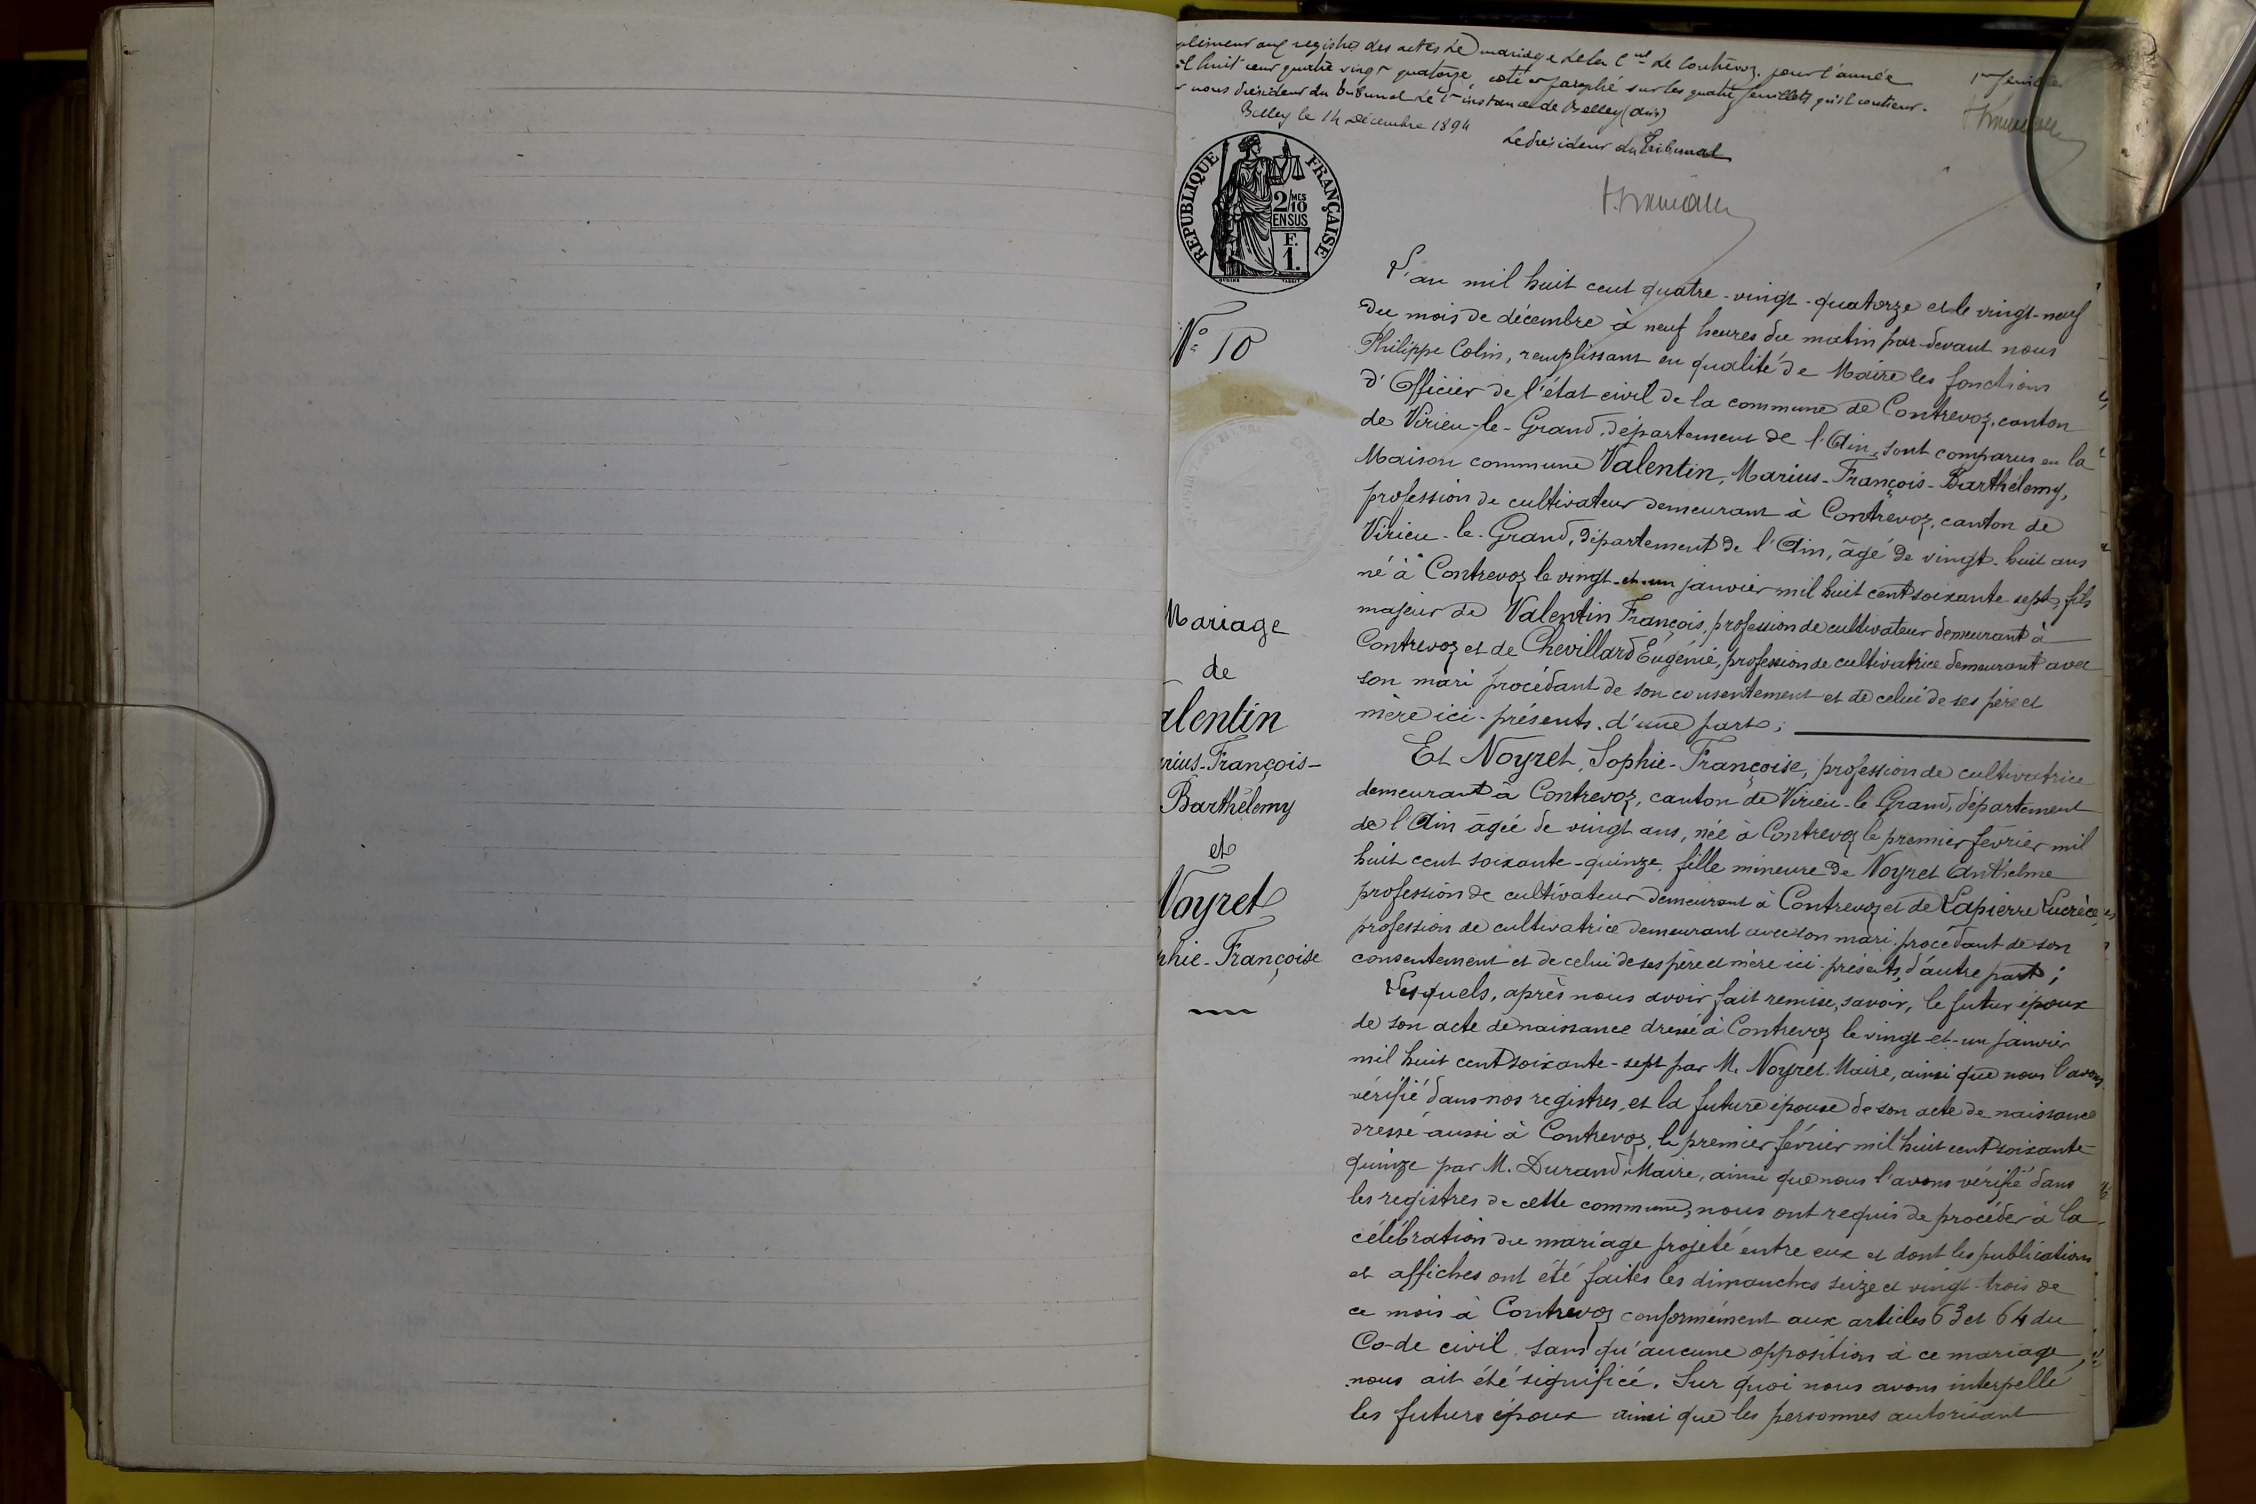 aux registres des actes de mariage de la Cne de Contrevoz, pour l'année
huit cent quatre vingt quatorze, coté et paraphé sur les quatre feuillets qu'il contient.
nous Président du Tribunal de 1re instance de Belley (Ain)
Belley le 14 Décembre 1894
Le Président du Tribunal
1er feuillet
RÉPUBLIQUE FRANÇAISE
2/10 MES
EN SUS
F.
1.
N° 10
Mariage
de
alentin
rius-François-
Barthélemy
et
Noyret
phie-Françoise
L'an mil huit cent quatre-vingt-quatorze et le vingt-neuf
du mois de décembre à neuf heures du matin par-devant nous
Philippe Colin, remplissant en qualité de Maire les fonctions
d'Officier de l'état civil de la commune de Contrevoz, canton
de Virieu-le-Grand, département de l'Ain, sont comparus en la
Maison commune Valentin, Marius-François-Barthélemy,
profession de cultivateur demeurant à Contrevoz, canton de
Virieu-le-Grand, département de l'Ain, âgé de vingt-huit ans
né à Contrevoz le vingt-et-un janvier mil huit cent soixante sept, fils
majeur de Valentin François, profession de cultivateur demeurant à
Contrevoz et de Chevillard Eugénie, profession de cultivatrice demeurant avec
son mari procédant de son consentement et de celui de ses père et
mère ici-présents, d'une part;
Et Noyret, Sophie-Françoise, profession de cultivatrice
demeurant à Contrevoz, canton de Virieu-le-Grand, département
de l'Ain âgée de vingt ans, née à Contrevoz le premier février mil
huit cent soixante-quinze, fille mineure de Noyret Anthelme
profession de cultivateur demeurant à Contrevoz et de Lapierre Lucrèce,
profession de cultivatrice demeurant avec son mari, procédant de son
consentement et de celui de ses père et mère ici-présents, d'autre part;
Lesquels, après nous avoir fait remise, savoir, le futur époux
de son acte de naissance dressé à Contrevoz le vingt-et-un janvier
mil huit cent soixante-sept par M. Noyret Maire, ainsi que nous l'avons
vérifié dans nos registres, et la future épouse de son acte de naissance
dressé aussi à Contrevoz, le premier février mil huit cent soixante-
quinze par M. Durand, Maire, ainsi que nous l'avons vérifié dans
les registres de cette commune, nous ont requis de procéder à la
célébration du mariage projeté entre eux et dont les publications
et affiches ont été faites les dimanches seize et vingt-trois de
ce mois à Contrevoz conformément aux articles 63 et 64 du
Co-de civil, sans qu'aucune opposition à ce mariage
nous ait été signifiée. Sur quoi nous avons interpellé
les futurs époux ainsi que les personnes autorisant